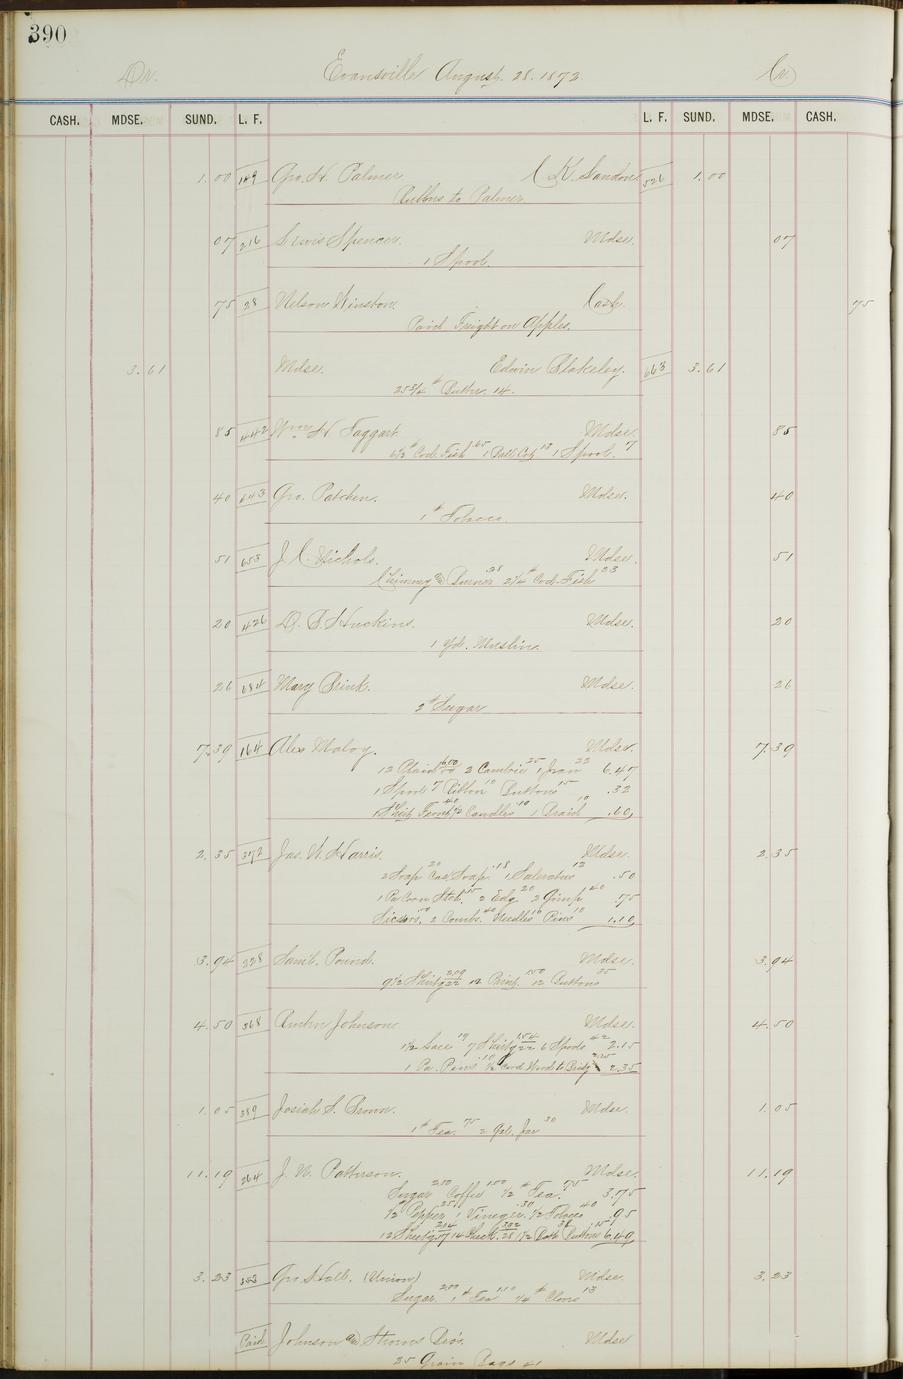 390
Dr. Evansville August. 28. 1872 Cr.
CASH. MDSE. SUND. L. F. L. F. SUND. MDSE. CASH.
1.00 149 Geo. H. Palmer C K. Landon 526 1.00
Buttons to Palmer.
07 216 Lewis Spencer. Mdse. 07
1 Spool.
75 28 Nelson Winston. Cash 75
Paid Freight on Apples.
3.61 Mdse. Edwin Blakeley. 663 3.61
25 3/4 # Butter. 14.
85 442 Wm H Taggart Mdse. 85
6 1/2 # Cod. Fish .65 1 18 1 Spool. 7
40 643 Geo. Patchen. Mdse. 40
1 # Tobaco.
51 653 J. C. Nichols. Mdse. 51
Chimney & Burner 28 2 1/4 # Cod. Fish 23
20 426 D. B. Huckins. Mdse. 20
1 Yd. Muslin.
26 684 Mary Brink. Mdse. 26
2 # Sugar
7.39 164 Alex Maloy. Mdse. 7.39
12 Plaid 6.00 2 Cambric 25 1 Jean 22 6.47
1 Spool 7 Ribbon 10 Buttons 15 .32
40 1/2 Candles 10 1 Braid 10 .60
2.35 372 Jas. W. Harris. Mdse. 2.35
2 Soap 20 Cas Soap 18 1 Saleratus 12 .50
1 Pa Corn Stch. 15 2 Edg. 20 2 Gimp 40 .75
Sicsors. 50 2 Combs. 40 Needles 10 Pins 10 1.10
3.94 228 Saml. Pound. Mdse. 3.94
9 1/2 Shirtg 209 22 12 Print 150 12 Buttons 35
4.50 368 Reuben Johnson Mdse. 4.50
1 1/2 Lace 19 7 Shirtg 154 22 6 Spools 42 2.15
1 Pa. Pins 10 1/2 Cord Wood to Bridg 2.25 2.35
1.05 389 Josiah S. Brown. Mdse. 1.05
1 # Tea. 75 2 Gal. Jar 30
11.19 264 J. W. Patterson. Mdse. 11.19
Sugar 200 Coffee 100 1/2 # Tea. 75 3.75
1/2 Pepper 25 1 Vinegar. 30 1/2 Tobaco 40 .95
12 Sheetg 204 17 14 Check. 392 28 1 1/2 38 Buttons 15 6.49
3.23 Geo. S. Holt. (Union) Mdse. 3.23
Sugar 200 1 # Tea 110 1/4 # Cloves 13
Paid Johnson & Mdse
25 Grain Bags